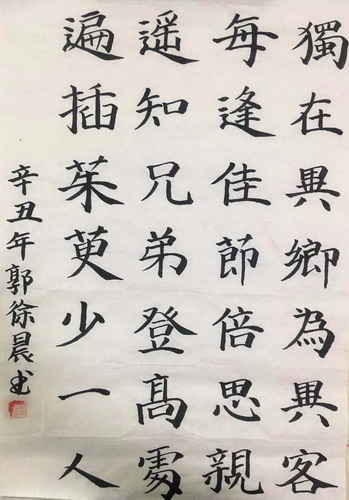 獨在異鄉為異客
每逢佳節倍思親
遥知兄弟登髙處
遍插茱萸少一人
辛丑年郭徐晨书